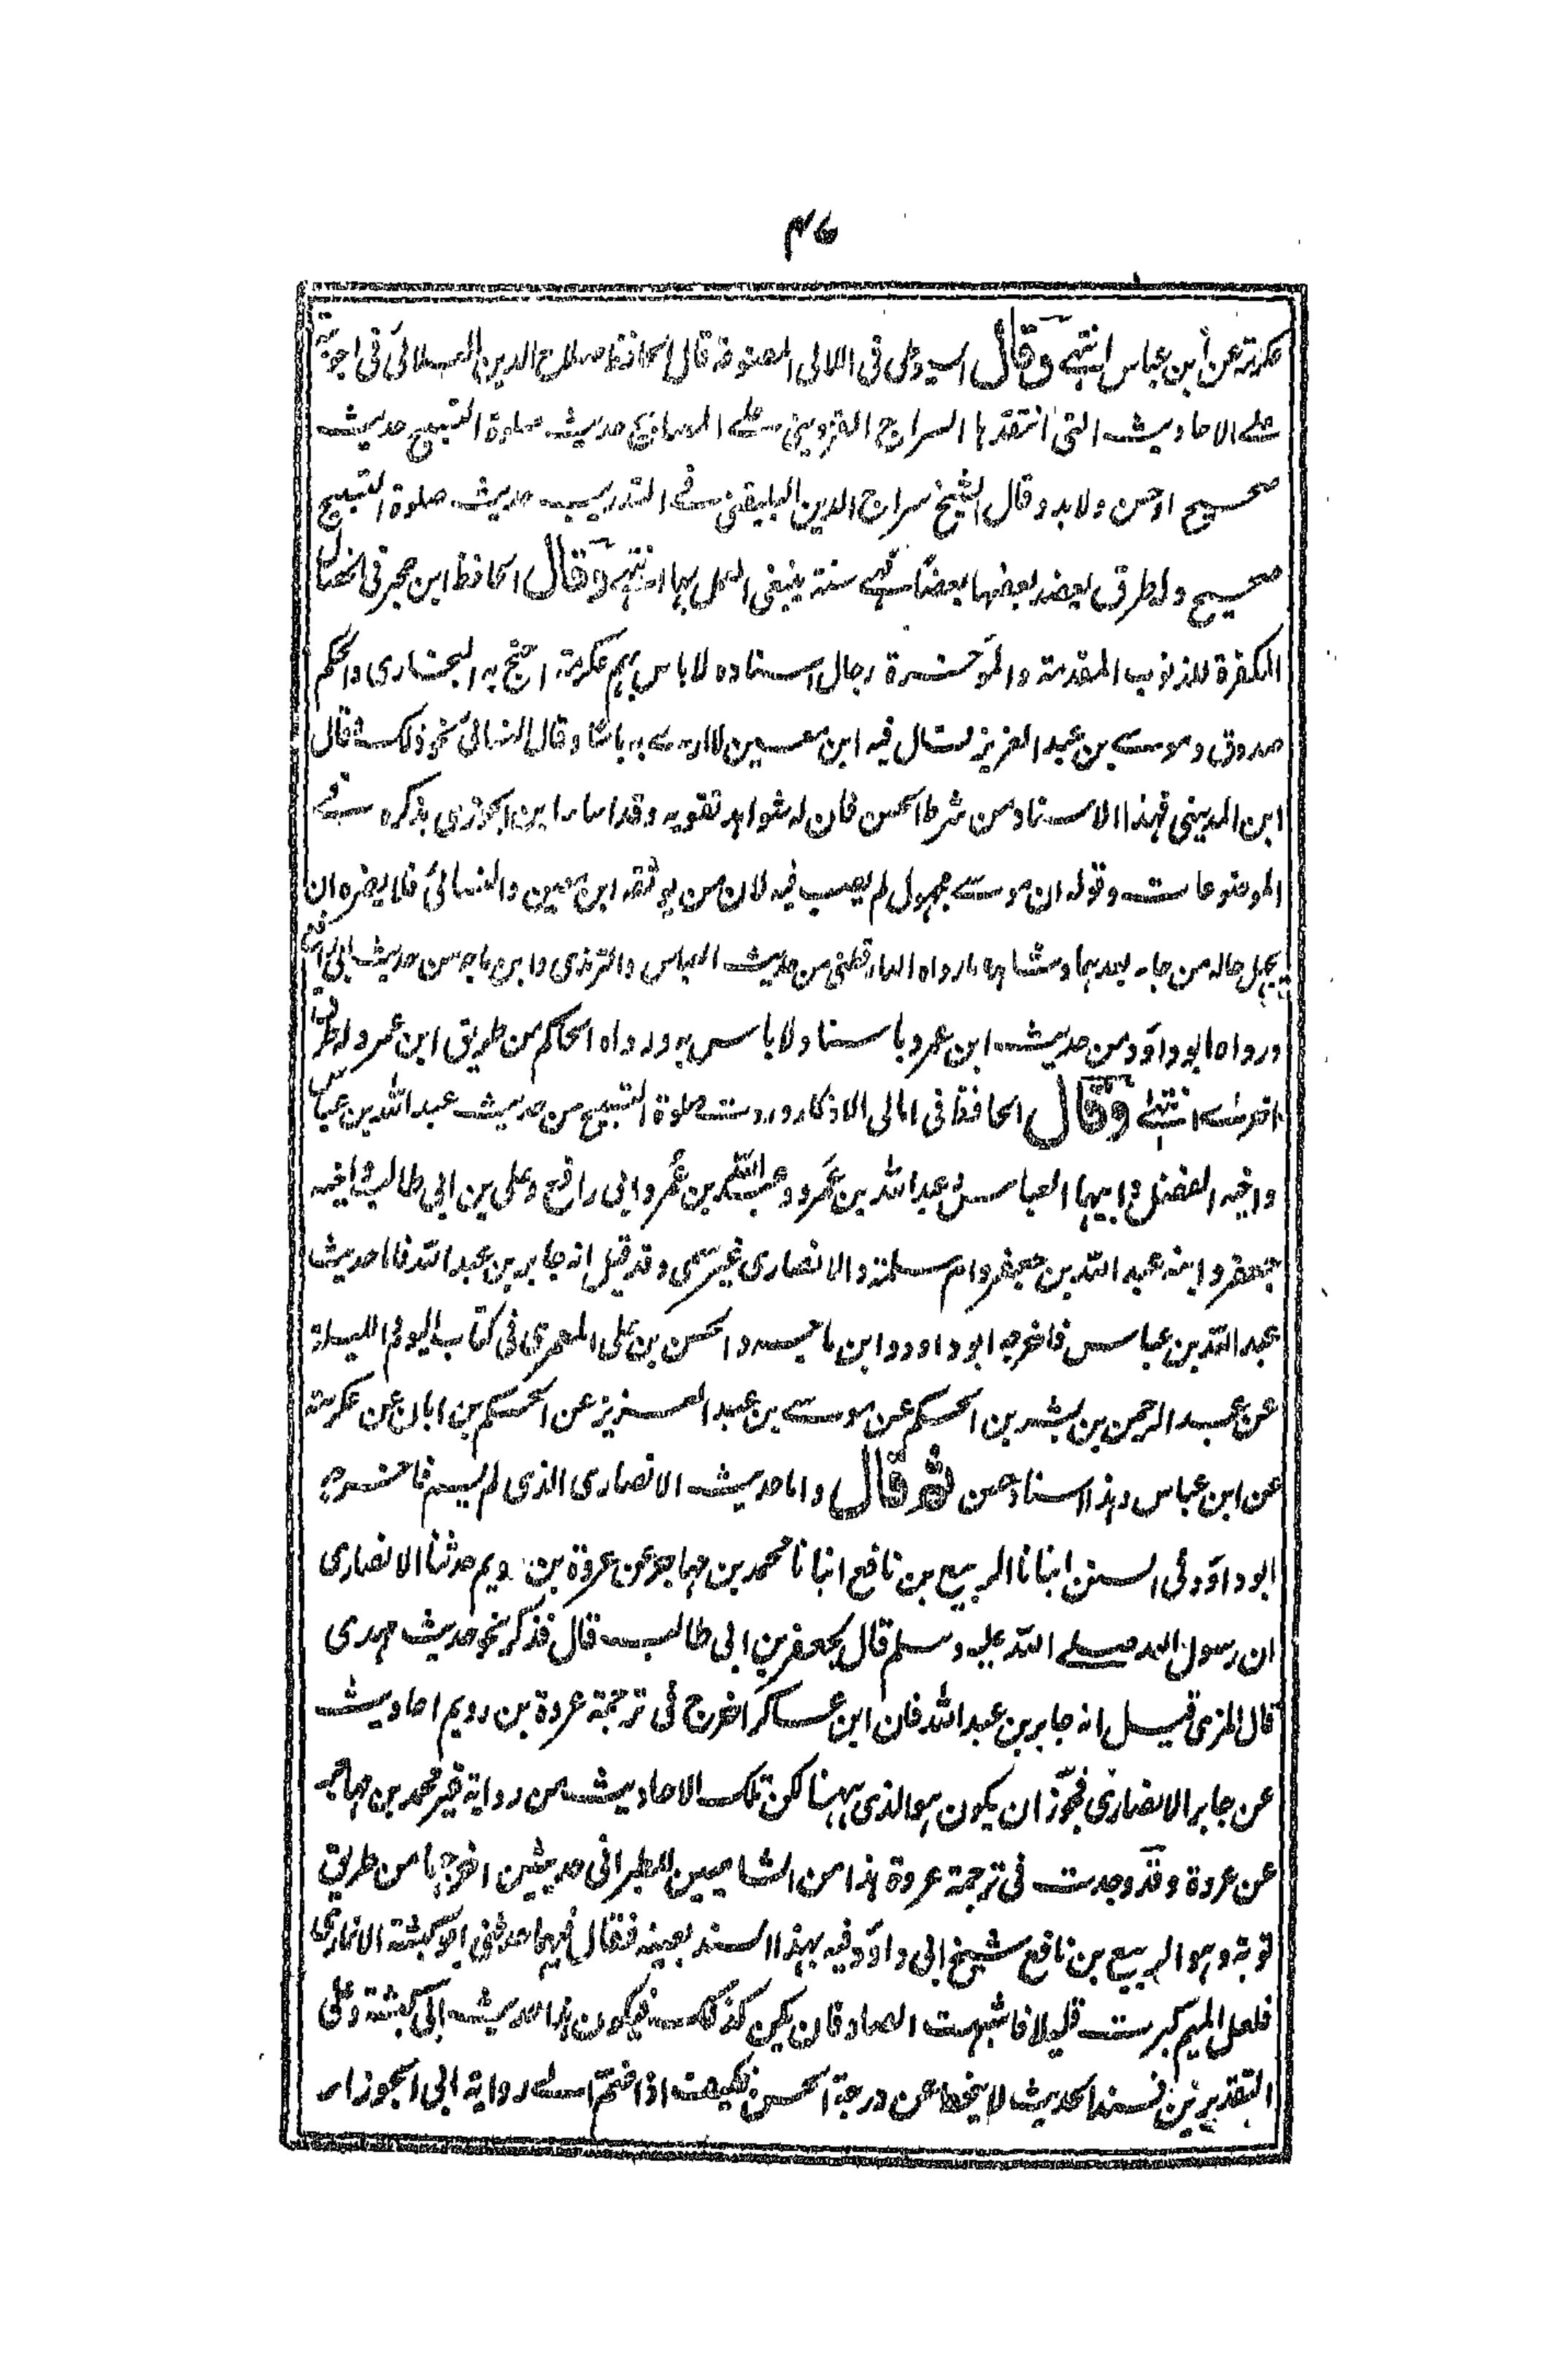 ٤٦
عكرمة عن ابن عباس انتهى وقال السيوطى فى اللالى المصنوعة قال الحافظ صلاح الدين العلائى فى اجوبته
على الاحاديث التى انتقدها السراج القزوينى على المصابيح حديث صلوة التسبيح حديث
صحيح او حسن ولابد وقال الشيخ سراج الدين البلقينى فى التدريب حديث صلوة التسبيح
صحيح وله طرق يعضد بعضها بعضا فهى سنة ينبغى العمل بها انتهى وقال الحافظ ابن حجر فى الخصال
المكفرة للذنوب المقدمة والمؤخرة رجال اسناده لا باس بهم عكرمة احتج به البخارى والحكم
صدوق وموسى بن عبد العزيز قال فيه ابن معين لا ارى به باسا وقال النسائى نحو ذلك قال
ابن المدينى فهذا الاسناد من شرط الحسن فان له شواهد تقويه وقد اساء ابن الجوزى بذكره فى
الموضوعات وقوله ان موسى مجهول لم يصب فيه لان من يوثقه ابن معين والنسائى فلا يضره ان
يجهل حاله من جاء بعدهما وشاهده ما رواه الدارقطنى من حديث العباس والترمذى وابن ماجه من حديث ابى رافع
ورواه ابو داؤد من حديث ابن عمرو باسناد لا باس به ورواه الحاكم من طريق ابن عمر وله طرق
اخرى انتهى وقال الحافظ فى امالى الاذكار وردت صلوة التسبيح من حديث عبد الله بن عباس
واخيه الفضل وابيهما العباس وعبد الله بن عمرو وعبد الله بن عمر وابى رافع وعلى بن ابى طالب واخيه
جعفر وابنه عبد الله بن جعفر وام سلمة والانصارى غير مسمى وقد قيل انه جابر بن عبد الله فاما حديث
عبد الله بن عباس فاخرجه ابو داود وابن ماجه والحسن بن على المعمرى فى كتاب اليوم والليلة
عن عبد الرحمن بن بشر بن الحكم عن موسى بن عبد العزيز عن الحكم بن ابان عن عكرمة
عن ابن عباس وهذا اسناد حسن ثم قال واما حديث الانصارى الذى لم يسم فاخرجه
ابو داؤد فى السنن انبانا الربيع بن نافع انبانا محمد بن مهاجر عن عروة بن رويم حدثنا الانصارى
ان رسول الله صلى الله عليه وسلم قال لجعفر بن ابى طالب قال فذكر نحو حديث مهدى
قال المزى قيل انه جابر بن عبد الله فان ابن عساكر اخرج فى ترجمة عروة بن رويم احاديث
عن جابر الانصارى فجوز ان يكون هو الذى ههنا لكن تلك الاحاديث من رواية غير محمد بن مهاجر
عن عروة وقد وجدت فى ترجمة عروة هذا من الشاميين للطبرانى حديثين اخرجهما من طريق
توبة وهو الربيع بن نافع شيخ ابى داؤد فيه بهذا السند بعينه فقال فيهما حدثنى ابو كبشة الانمارى
فلعل الميم كبرت قليلا فاشبهت الصاد فان يكن كذلك فيكون هذا حديث ابى كبشة وعلى
التقديرين فسند الحديث لا ينحط عن درجة الحسن فكيف اذا ضم الى رواية ابى الجوزاء